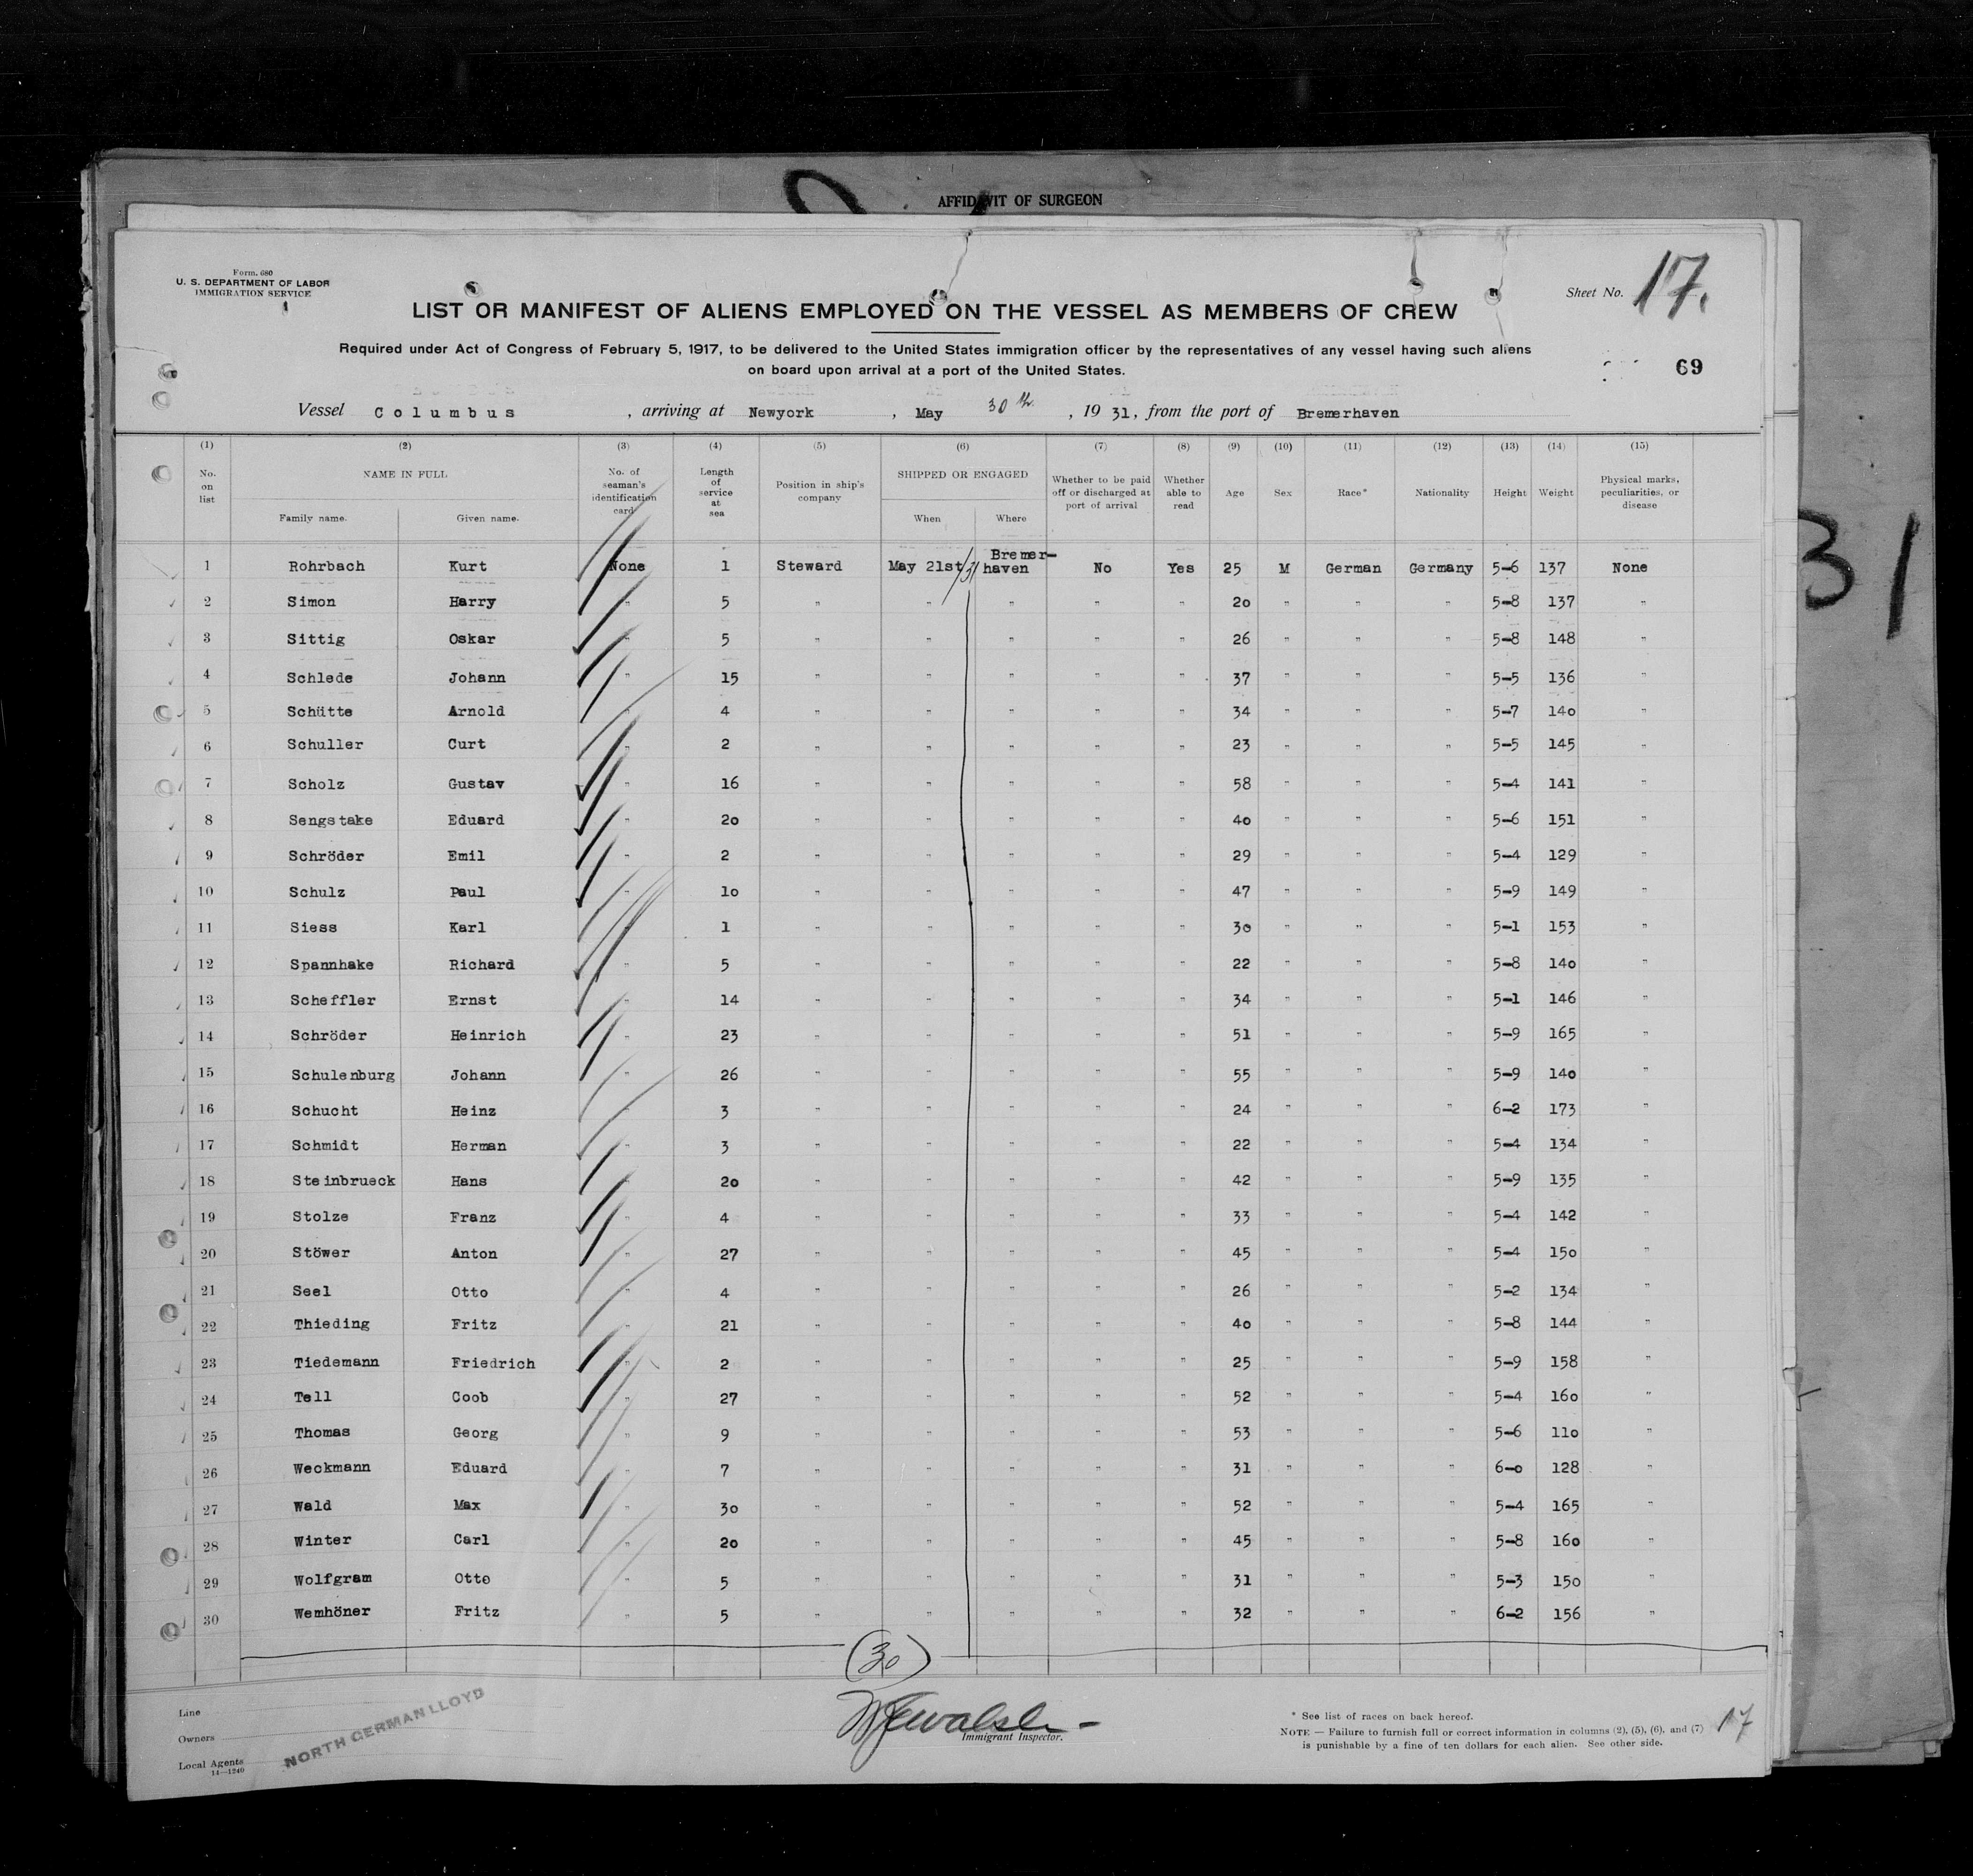 AFFIDAVIT OF SURGEON
Form. 680
U. S. DEPARTMENT OF LABOR
IMMIGRATION SERVICE
Sheet No. 17.
LIST OR MANIFEST OF ALIENS EMPLOYED ON THE VESSEL AS MEMBERS OF CREW
Required under Act of Congress of February 5, 1917, to be delivered to the United States immigration officer by the representatives of any vessel having such aliens
on board upon arrival at a port of the United States.
69
Vessel Columbus, arriving at Newyork, May 30th, 1931, from the port of Bremerhaven
(1) (2) (3) (4) (5) (6) (7) (8) (9) (10) (11) (12) (13) (14) (15)
No. on list NAME IN FULL Family name. Given name. No. of seaman's identification card Length of service at sea Position in ship's company SHIPPED OR ENGAGED When Where Whether to be paid off or discharged at port of arrival Whether able to read Age Sex Race* Nationality Height Weight Physical marks, peculiarities, or disease
1 Rohrbach Kurt None 1 Steward May 21st/31 Bremer-haven No Yes 25 M German Germany 5-6 137 None
2 Simon Harry " 5 " " " " " 20 " " " 5-8 137 "
3 Sittig Oskar " 5 " " " " " 26 " " " 5-8 148 "
4 Schlede Johann " 15 " " " " " 37 " " " 5-5 136 "
5 Schütte Arnold " 4 " " " " " 34 " " " 5-7 140 "
6 Schuller Curt " 2 " " " " " 23 " " " 5-5 145 "
7 Scholz Gustav " 16 " " " " " 58 " " " 5-4 141 "
8 Sengstake Eduard " 20 " " " " " 40 " " " 5-6 151 "
9 Schröder Emil " 2 " " " " " 29 " " " 5-4 129 "
10 Schulz Paul " 10 " " " " " 47 " " " 5-9 149 "
11 Siess Karl " 1 " " " " " 30 " " " 5-1 153 "
12 Spannhake Richard " 5 " " " " " 22 " " " 5-8 140 "
13 Scheffler Ernst " 14 " " " " " 34 " " " 5-1 146 "
14 Schröder Heinrich " 23 " " " " " 51 " " " 5-9 165 "
15 Schulenburg Johann " 26 " " " " " 55 " " " 5-9 140 "
16 Schucht Heinz " 3 " " " " " 24 " " " 6-2 173 "
17 Schmidt Herman " 3 " " " " " 22 " " " 5-4 134 "
18 Steinbrueck Hans " 20 " " " " " 42 " " " 5-9 135 "
19 Stolze Franz " 4 " " " " " 33 " " " 5-4 142 "
20 Stöwer Anton " 27 " " " " " 45 " " " 5-4 150 "
21 Seel Otto " 4 " " " " " 26 " " " 5-2 134 "
22 Thieding Fritz " 21 " " " " " 40 " " " 5-8 144 "
23 Tiedemann Friedrich " 2 " " " " " 25 " " " 5-9 158 "
24 Tell Coob " 27 " " " " " 52 " " " 5-4 160 "
25 Thomas Georg " 9 " " " " " 53 " " " 5-6 110 "
26 Weckmann Eduard " 7 " " " " " 31 " " " 6-0 128 "
27 Wald Max " 30 " " " " " 52 " " " 5-4 165 "
28 Winter Carl " 20 " " " " " 45 " " " 5-8 160 "
29 Wolfgram Otto " 5 " " " " " 31 " " " 5-3 150 "
30 Wemhöner Fritz " 5 " " " " " 32 " " " 6-2 156 "
(30)
Line
Owners
Local Agents
14—1240
NORTH GERMAN LLOYD
Immigrant Inspector.
* See list of races on back hereof.
NOTE — Failure to furnish full or correct information in columns (2), (5), (6), and (7)
is punishable by a fine of ten dollars for each alien. See other side.
17
31